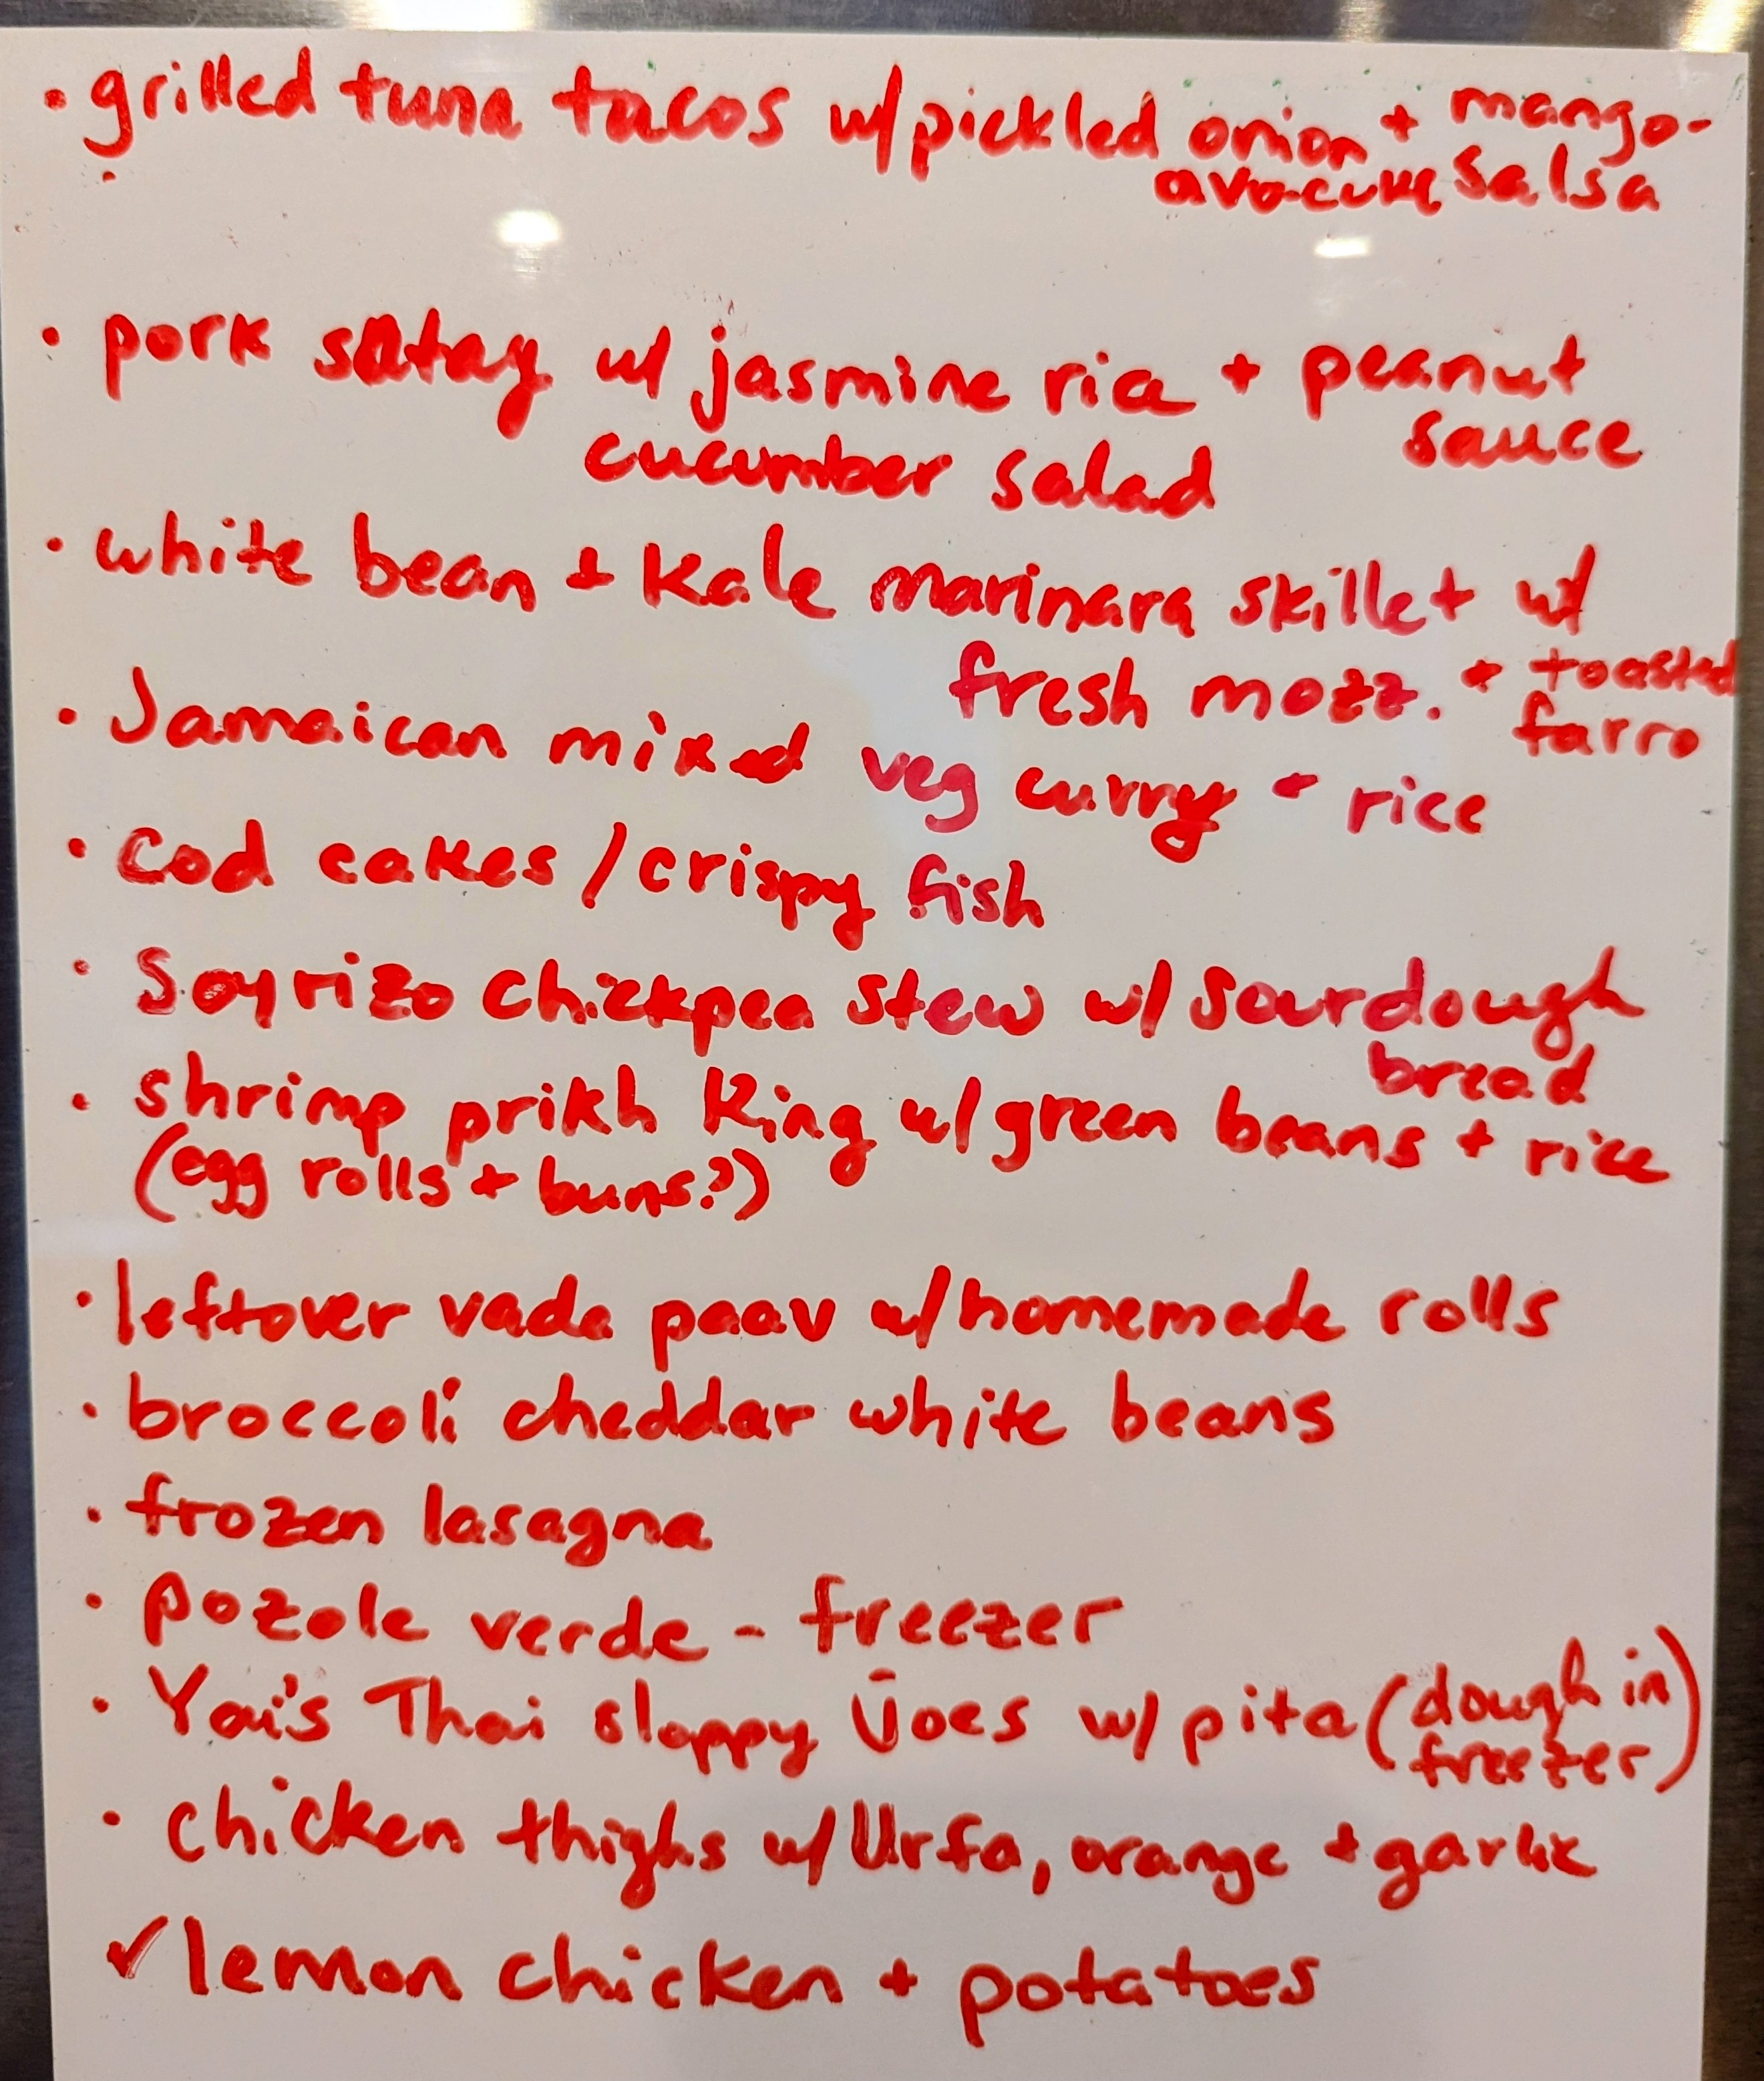 • grilled tuna tacos w/ pickled onion + mango-
avo-cuke salsa
• pork satay w/ jasmine rice + peanut
sauce
cucumber salad
• white bean + kale marinara skillet w/
fresh mozz. + toasted
farro
• Jamaican mixed veg curry + rice
• Cod cakes / crispy fish
• Soyrizo chickpea stew w/ sourdough
bread
• shrimp prikh King w/ green beans + rice
(egg rolls + buns?)
• leftover vada paav w/ homemade rolls
• broccoli cheddar white beans
• frozen lasagna
• pozole verde - freezer
• Yai's Thai sloppy Joes w/ pita (dough in
freezer)
• chicken thighs w/ Urfa, orange + garlic
✓ lemon chicken + potatoes